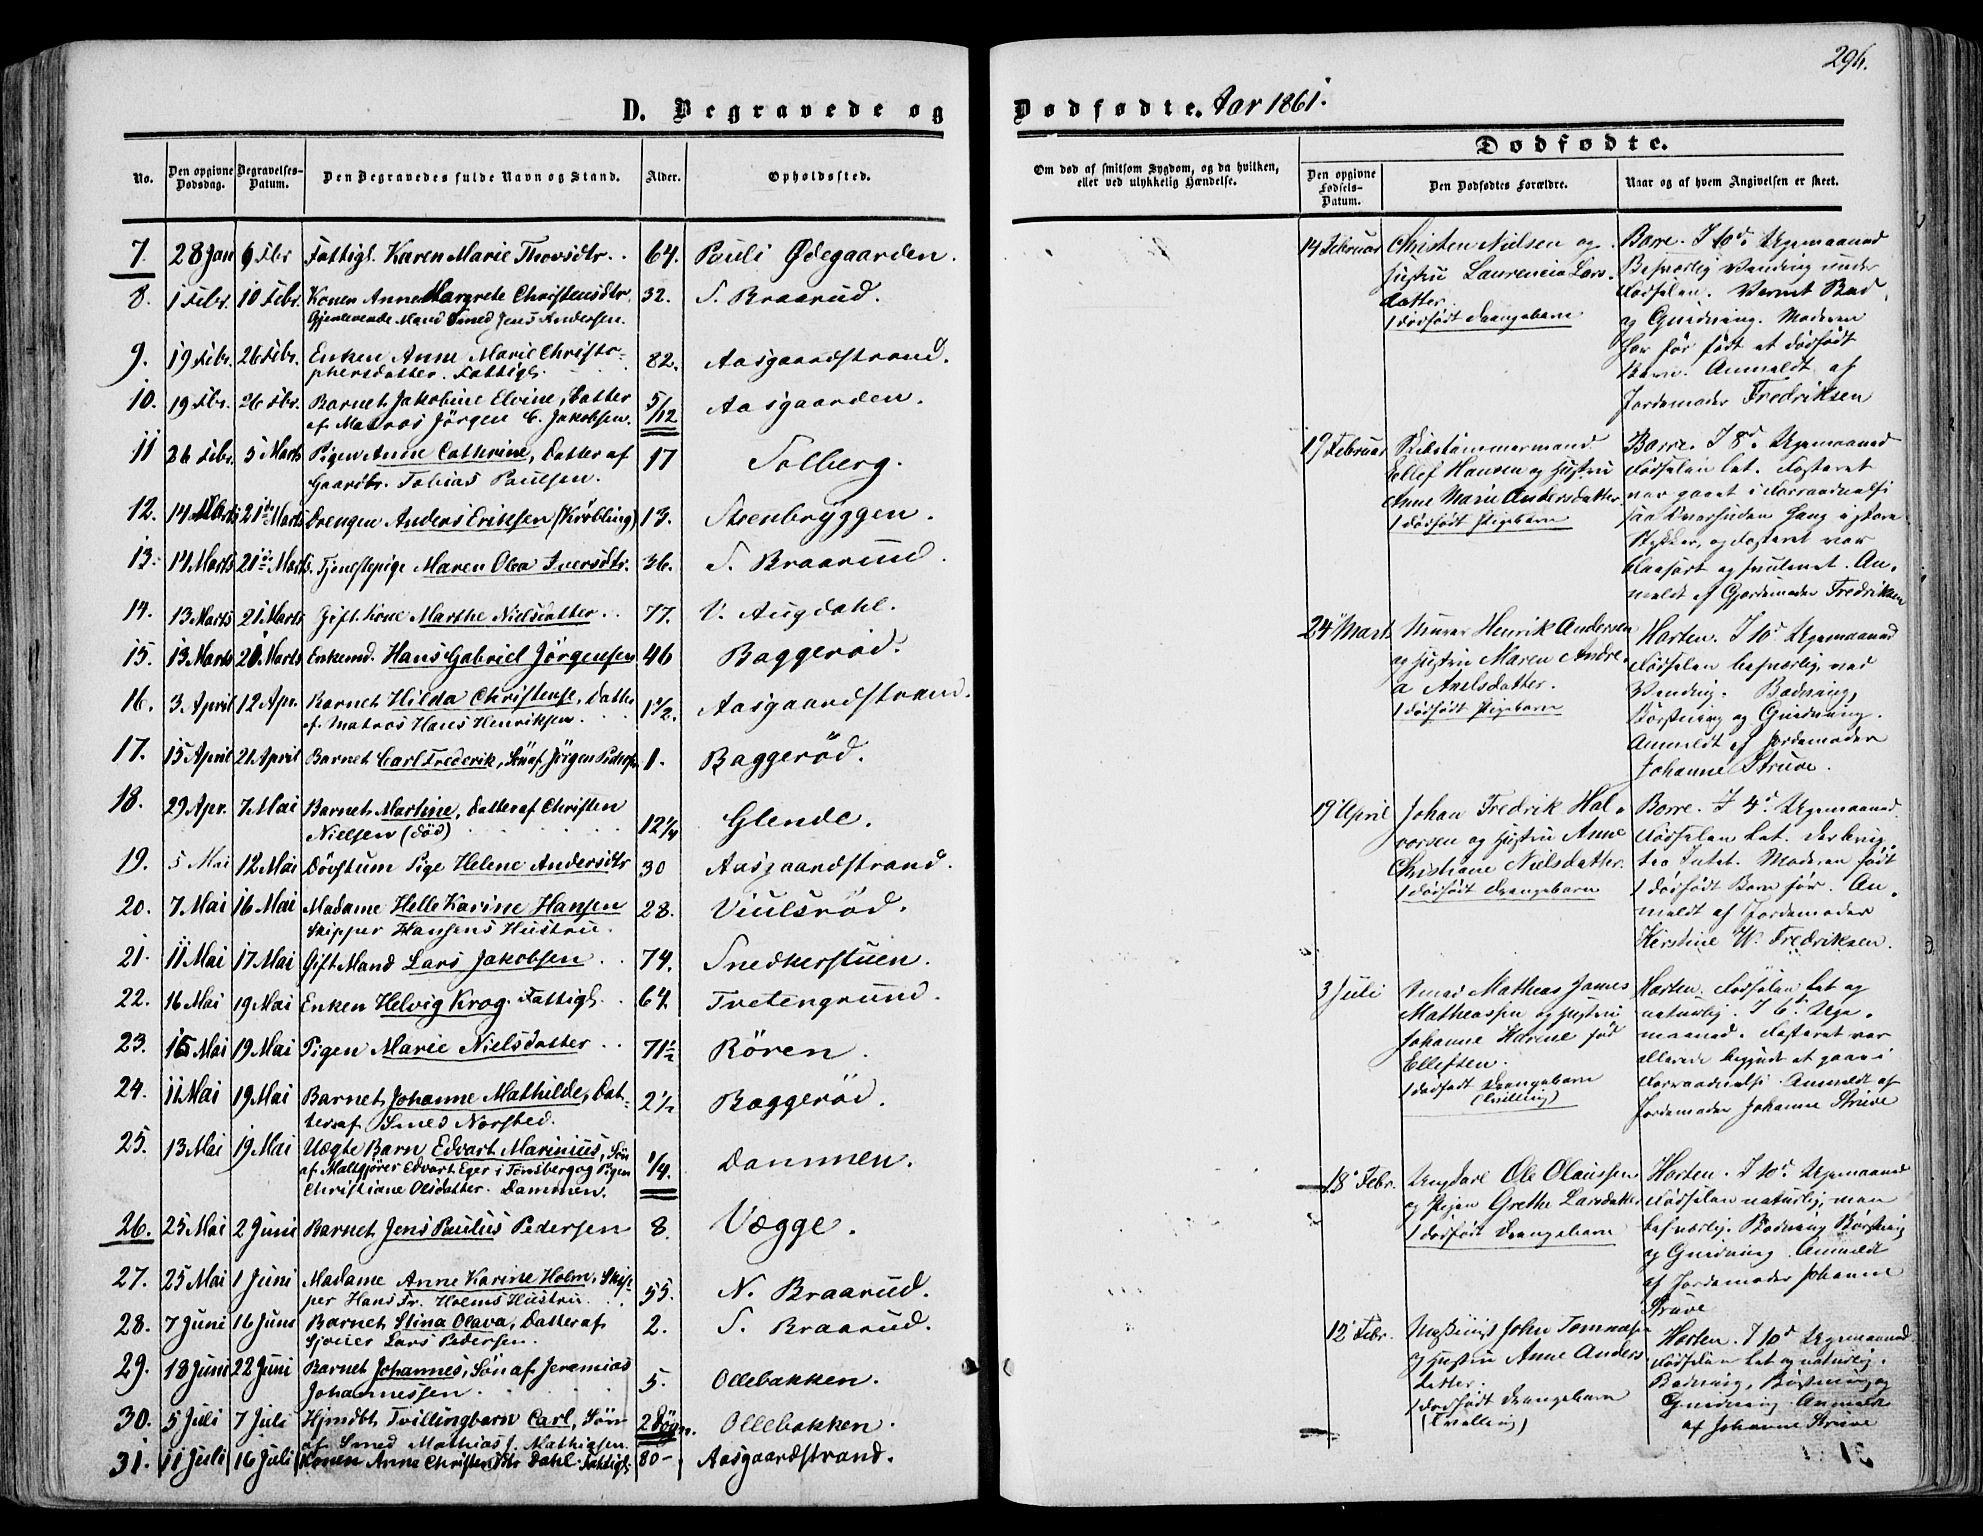 296.
D. Begravede og
Dødfødte. Aar 1861.
No.
Den opgivne Dødsdag.
Begravelses-Datum.
Den Begravedes fulde Navn og Stand.
Alder.
Opholdssted.
Om død af smitsom Sygdom, og da hvilken, eller ved ulykkelig Hændelse.
Dødfødte.
Den opgivne Fødsels-Datum.
Den Dødfødtes Forældre.
Naar og af hvem Angivelsen er skeet.
7. 28 Jan 6 Febr Fattigl. Karen Marie Thorsdtr. 64. Pauli Ødegaarden.
8. 1 Febr. 10 Febr. Konen Anne Margrete Christensdtr. 32. S. Braarud.
Gjenlevende Mand Smed Jens Andersen.
9. 19 Febr. 26 Febr. Enken Anne Marie Christo- 82. Aasgaardstrand.
phersdatter. Fattigl.
10. 19 Febr. 26 Febr. Barnet Jakobine Elvine, Datter 5/12 Aasgaarden.
af Matros Jörgen C. Jakobsen.
11 26 Febr. 5 Marts Pigen Anne Cathrine, Datter af 17 Solberg.
Gaardbr. Tobias Paulsen.
12. 14 Marts 21 Marts Drengen Anders Eriksen (Krøbling) 13. Steenbryggen.
13. 14 Marts 21 Marts. Tjenestepige Maren Olea Iversdtr. 36. S. Braarud.
14. 13 Marts 21 Marts Gift Kone Marthe Nielsdatter 77. V. Augdahl.
15. 13 Marts 21 Marts Enkemd. Hans Gabriel Jörgensen 46 Baggeröd.
16. 3 April 12 Apr. Barnet Hilda Christense, Datter 1 1/2. Aasgaardstrand.
af Matros Hans Henriksen.
17. 15 April 21 April Barnet Carl Frederik, Sön af Jörgen Peders. 1. Baggeröd.
18. 29 Apr. 7 Mai Barnet Martine, Datter af Christen 12 1/4 Glende.
Nielsen (död)
19. 5 Mai 12 Mai Dövstum Pige Helene Andersdtr 30 Aasgaardstrand.
20. 7 Mai 16 Mai Madame Helle Karine Hansen 28. Viulsröd.
Skipper Hansens Hustru.
21. 11 Mai 17 Mai Gift Mand Lars Jakobsen 74. Snedkerstuen.
22. 16 Mai 19 Mai Enken Helvig Krog. Fattigl. 64. Tvetengrund.
23. 16 Mai 19 Mai Pigen Marie Nielsdatter 71 1/2 Rören.
24. 11 Mai 19 Mai Barnet Johanne Mathilde, Dat- 2 1/2 Baggeröd.
ter af Smed Norsted.
25. 13 Mai 19 Mai Uægte Barn Edvart Marinius, Sön 1/4. Dammen.
af Maltgjörer Edvart Eger i Tønsberg og Pigen
Christiane Olsdatter. Dammen.
26. 25 Mai 2 Juni Barnet Jens Paulus Pedersen 8. Vægge.
27. 25 Mai 1 Juni Madame Anne Karine Holm, Skip- 55. N. Braarud.
per Hans Fr. Holms Hustru.
28. 7 Juni 16 Juni Barnet Stina Olava, Datter af 2. S. Braarud.
Sjøuer Lars Pedersen.
29. 18 Juni 22 Juni Barnet Johannes, Sön af Jeremias 5. Ollebakken.
Johannessen.
30. 5 Juli 7 Juli Hjmdbt. Tvillingbarn Carl, Sön 2 Dögn. Ollebakken.
af Smed Mathias J. Mathiasen.
31. 11 Juli 16 Juli Konen Anne Christensdtr Dahl. Fattigl 80 Aasgaardstrand.
14 Februar Christen Nielsen og
Hustru Laurencia Lars-
datter.
1 dödfödt Drengebarn
Borre. I 10de Ugemaaned
Besværlig Vending under
Födselen. Varmt Bad
og Gnidning. Moderen
har för födt et dödfödt
Barn. Anmeldt af
Jordemoder Fredriksen
19 Februar Skibstömmermand
Ellef Hansen og Hustru
Anne Marie Andersdatter
1 dödfödt Pigebarn
Borre. I 8de Ugemaaned
Födselen let. Fosteret
var gaaet i Forraadnelse
saa Overhuden hang i store
Stykker, og Fosteret var
blaasort og svulent. An-
meldt af Gjordemoder Fredriksen
24 Marts Murer Henrik Andersen
og Hustru Maren Andre-
a Axelsdatter.
1 dödfödt Pigebarn
Horten. I 10de Ugemaaned
Födselen besværlig, ved
Vending. Badning,
Börstning og Gnidning.
Anmeldt af Jordemoder
Johanne Struve.
19 April Johan Fredrik Hal-
vorsen og Hustru Anne
Christiane Nielsdatter.
1 dödfödt Drengebarn
Borre. I 4de Ugemaaned.
Födselen let.
Intet. Moderen födt
1 dödfödt Barn för. An-
meldt af Jordemoder
Kirstine W. Fredriksen.
3 Juli Smed Mathias James
Mathiassen og Hustru
Johanne Karine född
Ellefsen.
1 dödfödt Drengebarn
(Tvilling)
Horten. Födselen let og
naturlig. I 6te Uge-
maaned. Fosteret var
allerede begyndt at gaae i
Forraadnelse. Anmeldt af
Jordemoder Johanne Struve
18 Febr. Ungkarl Ole Olaussen
og Pigen Grethe Larsdatter
1 dödfödt Drengebarn
Horten. I 10de Ugemaaned
Födselen naturlig, men
besværlig. Badning Börstning
og Gnidning. Anmeldt
af Jordemoder Johanne
Struve
12 Febr. John Tommesen
og Hustru Anne Anders-
datter.
1 dödfödt Drengebarn
(Tvilling)
Horten. I 10de Ugemaaned
Födselen let og naturlig.
Badning, Börstning og
Gnidning. Anmeldt
af Johanne Struve